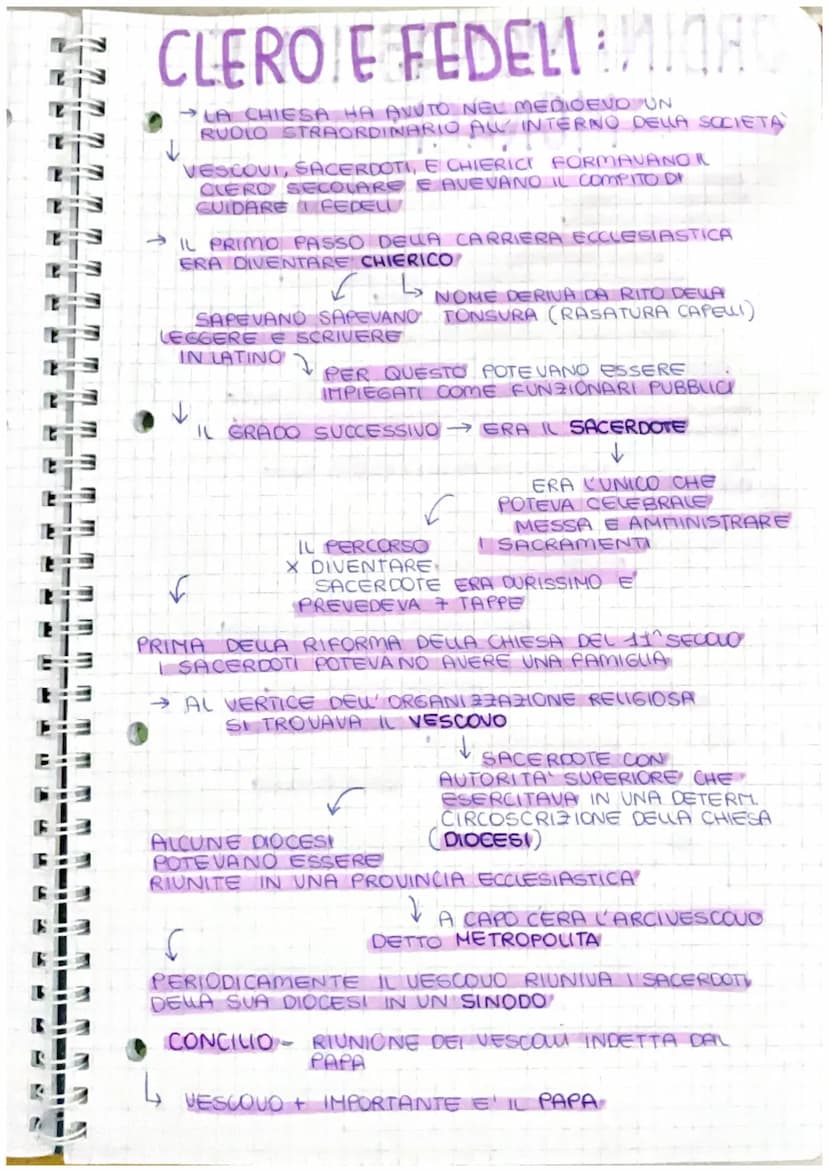 CLERO E FEDELI:
→ LA CHIESA HA AVUTO NEL MEDIOEVO UN
RUOLO STRAORDINARIO ALL' INTERNO DELLA SOCIETÀ
VESCOVI, SACERDOTI, E CHIERICI FORMAVANO IL
CLERO SECOLARE E AVEVANO IL COMPITO DI
GUIDARE I FEDELI
→ IL PRIMO PASSO DELLA CARRIERA ECCLESIASTICA
ERA DIVENTARE CHIERICO
NOME DERIVA DA RITO DELLA
TONSURA (RASATURA CAPELLI)
SAPEVANO SAPEVANO
LEGGERE E SCRIVERE
IN LATINO
PER QUESTO POTEVANO ESSERE
IMPIEGATI COME FUNZIONARI PUBBLICI
IL GRADO SUCCESSIVO → ERA IL SACERDOTE
ERA L'UNICO CHE
POTEVA CELEBRALE
MESSA E AMMINISTRARE
I SACRAMENTI
IL PERCORSO
X DIVENTARE
SACERDOTE ERA DURISSIMO E
PREVEDEVA 7 TAPPE
PRIMA DELLA RIFORMA DELLA CHIESA DEL 11^ SECOLO
I SACERDOTI POTEVANO AVERE UNA FAMIGLIA
→ AL VERTICE DELL' ORGANIZZAZIONE RELIGIOSA
SI TROVAVA IL VESCOVO
SACERDOTE CON
AUTORITA' SUPERIORE CHE
ESERCITAVA IN UNA DETERM.
CIRCOSCRIZIONE DELLA CHIESA
(DIOCESI)
ALCUNE DIOCESI
POTEVANO ESSERE
RIUNITE IN UNA PROVINCIA ECCLESIASTICA
A CAPO C'ERA L'ARCIVESCOVO
DETTO METROPOLITA
PERIODICAMENTE IL VESCOVO RIUNIVA I SACERDOTI
DELLA SUA DIOCESI IN UN SINODO
CONCILIO - RIUNIONE DEI VESCOVI INDETTA DAL
PAPA
VESCOVO + IMPORTANTE E' IL PAPA